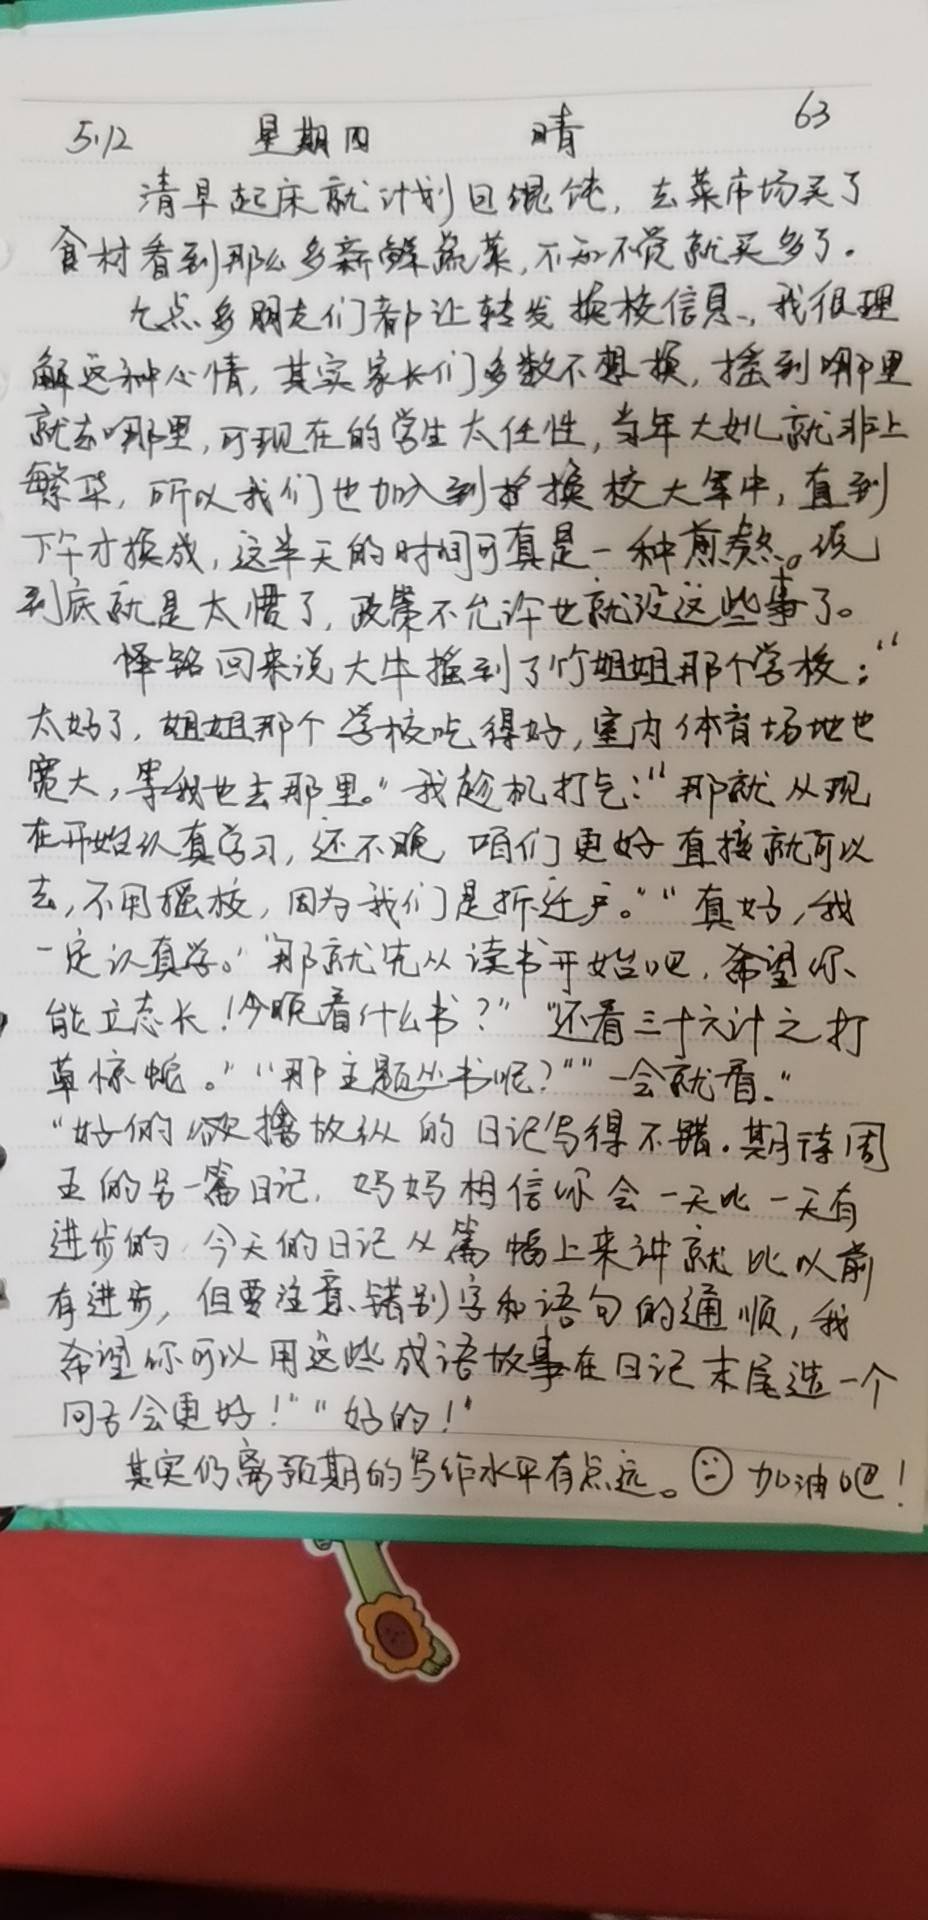 5.12 星期四 晴 63
清早起床就计划包馄饨，去菜市场买了
食材看到那么多新鲜蔬菜，不知不觉就买多了。
九点多朋友们都让转发换校信息，我很理
解这种心情，其实家长们多数不想换，摇到哪里
就去哪里，可现在的学生太任性，当年大姚就非上
繁华，所以我们也加入到换校大军中，直到
下午才换成，这半天的时间可真是一种煎熬。说
到底就是太惯了，政策不允许也就没这些事了。
怿铭回来说大牛摇到了竹姐姐那个学校：“
太好了，姐姐那个学校吃得好，室内体育场地也
宽大，等我也去那里。”我趁机打气：“那就从现
在开始认真学习，还不晚 咱们更好直接就可以
去，不用摇校，因为我们是拆迁户。”“真好，我
一定认真学。”“那就先从读书开始吧，希望你
能立志长！今晚看什么书？”“还看三十六计之打
草惊蛇。”“那主题丛书呢？”“一会就看。”
“好的 欲擒故纵的日记写得不错。期待周
五的另一篇日记，妈妈相信你会一天比一天有
进步的 今天的日记从篇幅上来讲就比以前
有进步，但要注意错别字和语句的通顺，我
希望你可以用这些成语故事在日记末尾造一个
问号会更好！”“好的！”
其实仍离预期的写作水平有点远。加油吧！